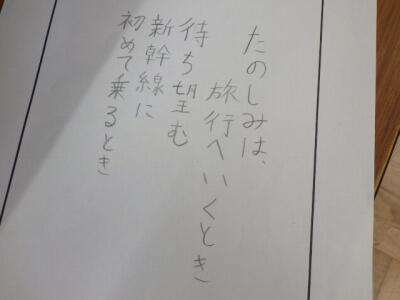 たのしみは、
旅行へいくとき
待ち望む
新幹線に
初めて乗るとき